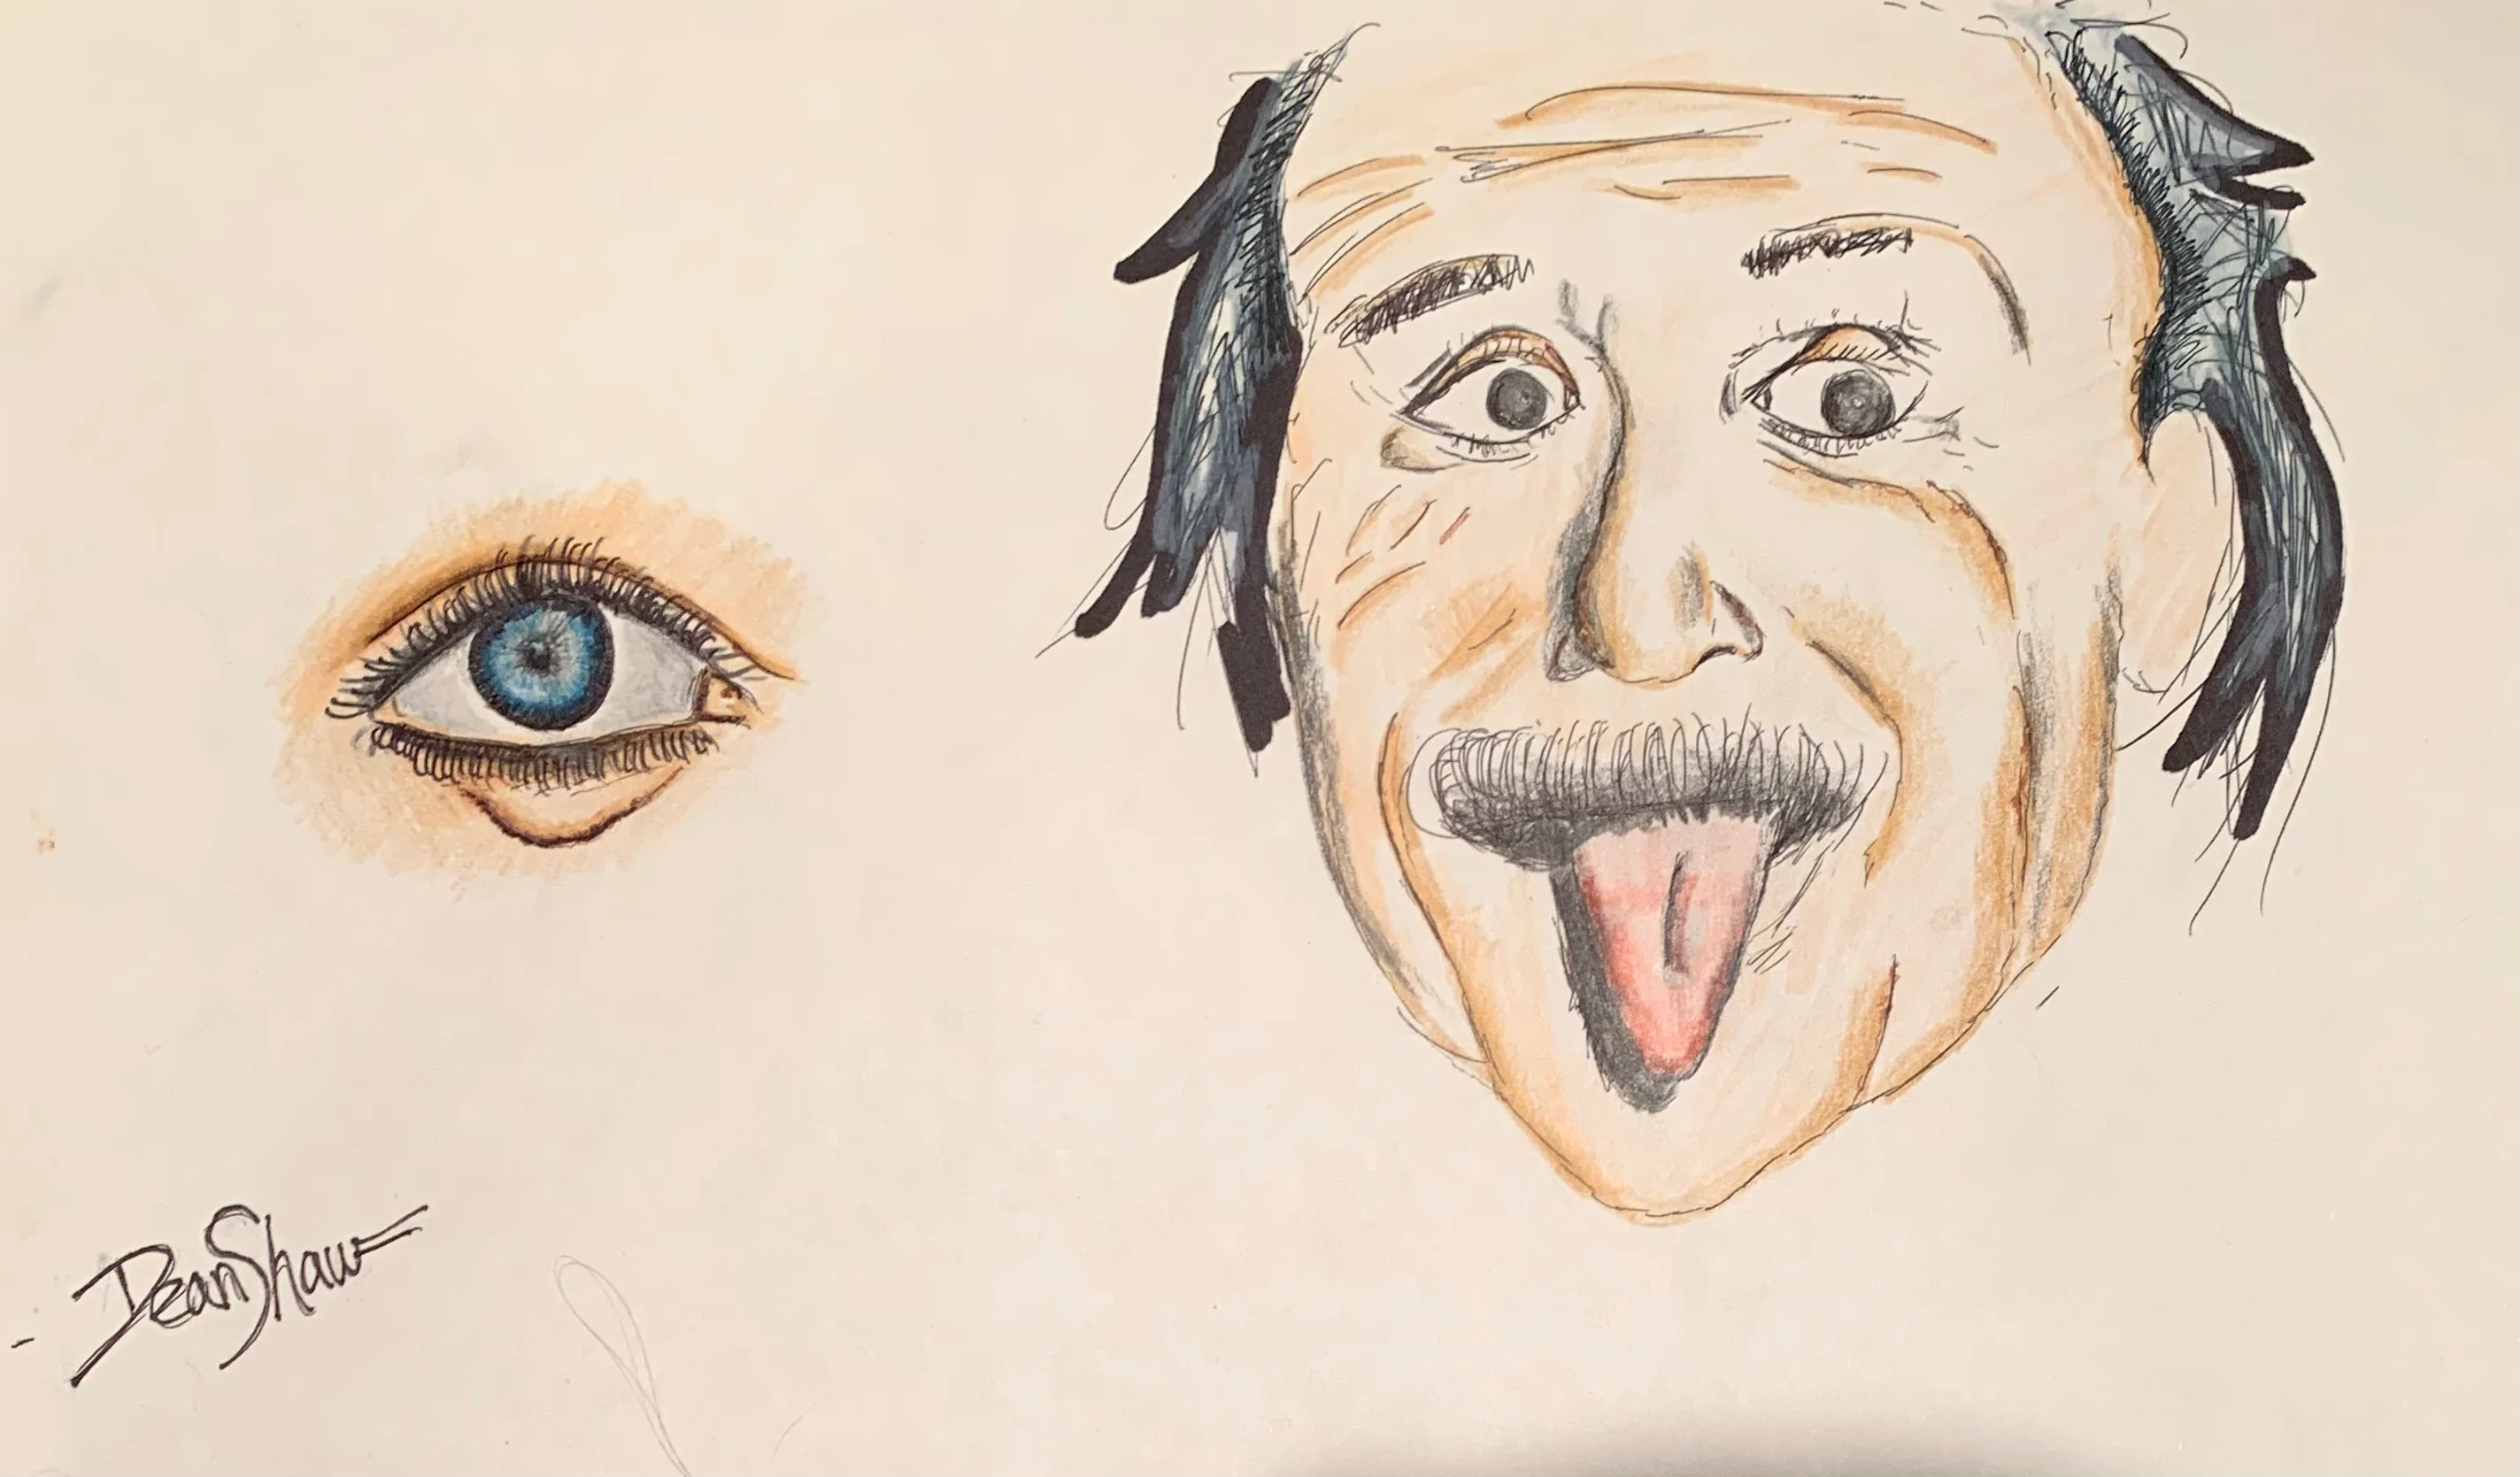 Dean Shaw